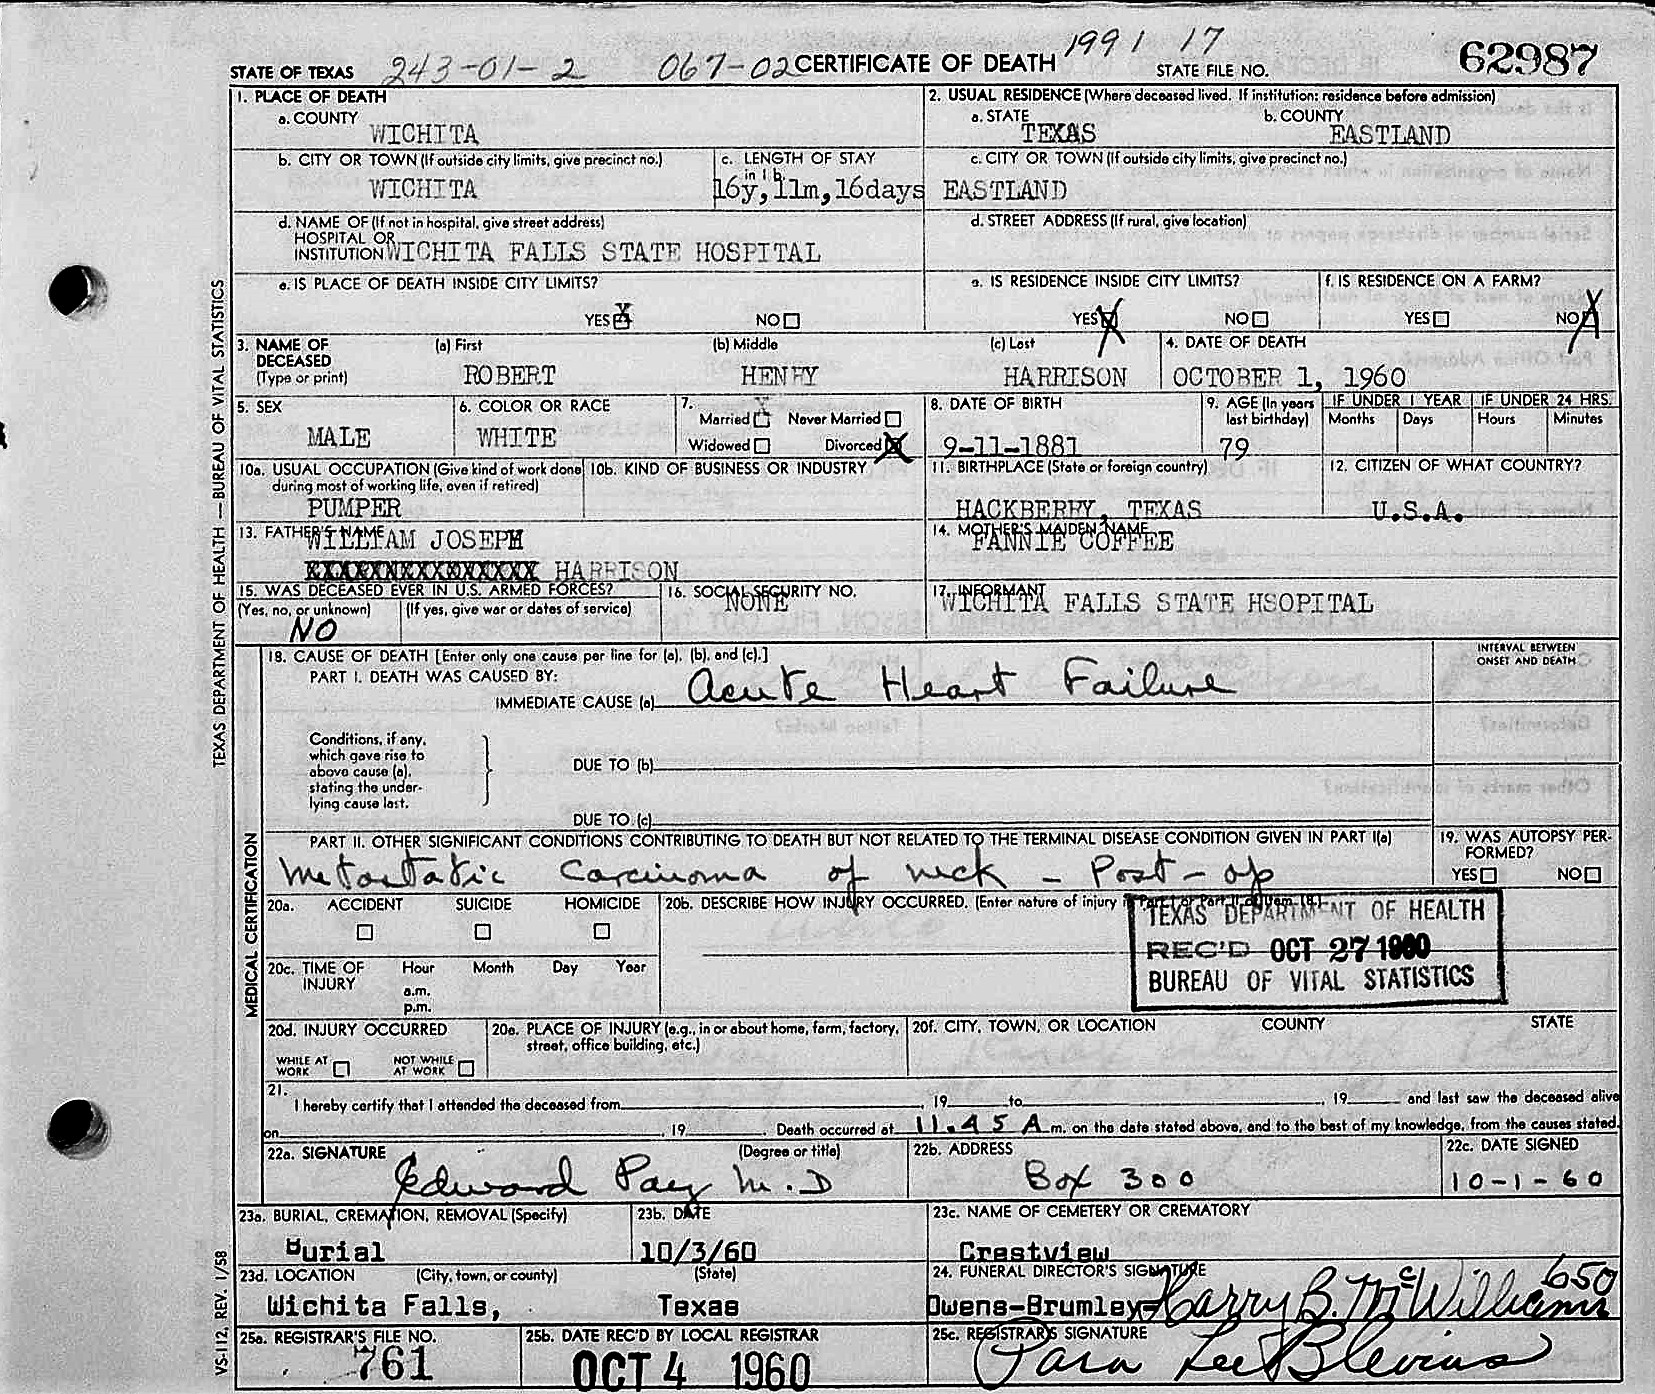 STATE OF TEXAS 243-01-2 067-02 CERTIFICATE OF DEATH 1991 17 STATE FILE NO. 62987
1. PLACE OF DEATH
a. COUNTY
WICHITA
2. USUAL RESIDENCE (Where deceased lived. If institution: residence before admission)
a. STATE b. COUNTY
TEXAS EASTLAND
b. CITY OR TOWN (If outside city limits, give precinct no.)
WICHITA
c. LENGTH OF STAY
in 1 b.
16y,11m,16days
c. CITY OR TOWN (If outside city limits, give precinct no.)
EASTLAND
d. NAME OF (If not in hospital, give street address)
HOSPITAL OR
INSTITUTION WICHITA FALLS STATE HOSPITAL
d. STREET ADDRESS (If rural, give location)
e. IS PLACE OF DEATH INSIDE CITY LIMITS?
YES X NO
e. IS RESIDENCE INSIDE CITY LIMITS?
YES X NO
f. IS RESIDENCE ON A FARM?
YES NO X
3. NAME OF DECEASED
(Type or print)
(a) First (b) Middle (c) Last
ROBERT HENRY HARRISON
4. DATE OF DEATH
OCTOBER 1, 1960
5. SEX
MALE
6. COLOR OR RACE
WHITE
7.
Married Never Married
Widowed Divorced X
8. DATE OF BIRTH
9-11-1881
9. AGE (In years last birthday)
79
IF UNDER 1 YEAR IF UNDER 24 HRS.
Months Days Hours Minutes
10a. USUAL OCCUPATION (Give kind of work done
during most of working life, even if retired)
PUMPER
10b. KIND OF BUSINESS OR INDUSTRY
11. BIRTHPLACE (State or foreign country)
HACKBERRY, TEXAS
12. CITIZEN OF WHAT COUNTRY?
U.S.A.
13. FATHER'S NAME
WILLIAM JOSEPH
XXXXXXXXXXXXXXX HARRISON
14. MOTHER'S MAIDEN NAME
FANNIE COFFEE
15. WAS DECEASED EVER IN U.S. ARMED FORCES?
(Yes, no, or unknown) (If yes, give war or dates of service)
NO
16. SOCIAL SECURITY NO.
NONE
17. INFORMANT
WICHITA FALLS STATE HSOPITAL
18. CAUSE OF DEATH [Enter only one cause per line for (a), (b), and (c).]
PART I. DEATH WAS CAUSED BY:
IMMEDIATE CAUSE (a) Acute Heart Failure
INTERVAL BETWEEN
ONSET AND DEATH
Conditions, if any,
which gave rise to
above cause (a),
stating the under-
lying cause last.
DUE TO (b)
DUE TO (c)
PART II. OTHER SIGNIFICANT CONDITIONS CONTRIBUTING TO DEATH BUT NOT RELATED TO THE TERMINAL DISEASE CONDITION GIVEN IN PART I(a)
Metastatic Carcinoma of neck - Post-op
19. WAS AUTOPSY PER-
FORMED?
YES NO
20a. ACCIDENT SUICIDE HOMICIDE
20b. DESCRIBE HOW INJURY OCCURRED. (Enter nature of injury in Part I or Part II of item 18.)
TEXAS DEPARTMENT OF HEALTH
REC'D OCT 27 1960
BUREAU OF VITAL STATISTICS
20c. TIME OF INJURY
Hour Month Day Year
a.m.
p.m.
20d. INJURY OCCURRED
WHILE AT WORK NOT WHILE AT WORK
20e. PLACE OF INJURY (e.g., in or about home, farm, factory,
street, office building, etc.)
20f. CITY, TOWN, OR LOCATION COUNTY STATE
21.
I hereby certify that I attended the deceased from , 19 to , 19 and last saw the deceased alive
on , 19 . Death occurred at 11.45 A m. on the date stated above, and to the best of my knowledge, from the causes stated.
22a. SIGNATURE (Degree or title)
Edward Pay M.D
22b. ADDRESS
Box 300
22c. DATE SIGNED
10-1-60
23a. BURIAL, CREMATION, REMOVAL (Specify)
Burial
23b. DATE
10/3/60
23c. NAME OF CEMETERY OR CREMATORY
Crestview
23d. LOCATION (City, town, or county) (State)
Wichita Falls, Texas
24. FUNERAL DIRECTOR'S SIGNATURE 650
Owens-Brumley- Harry B. McWilliams
25a. REGISTRAR'S FILE NO.
761
25b. DATE REC'D BY LOCAL REGISTRAR
OCT 4 1960
25c. REGISTRAR'S SIGNATURE
Para Lee Blevins
TEXAS DEPARTMENT OF HEALTH — BUREAU OF VITAL STATISTICS
MEDICAL CERTIFICATION
VS-112, REV. 1/58